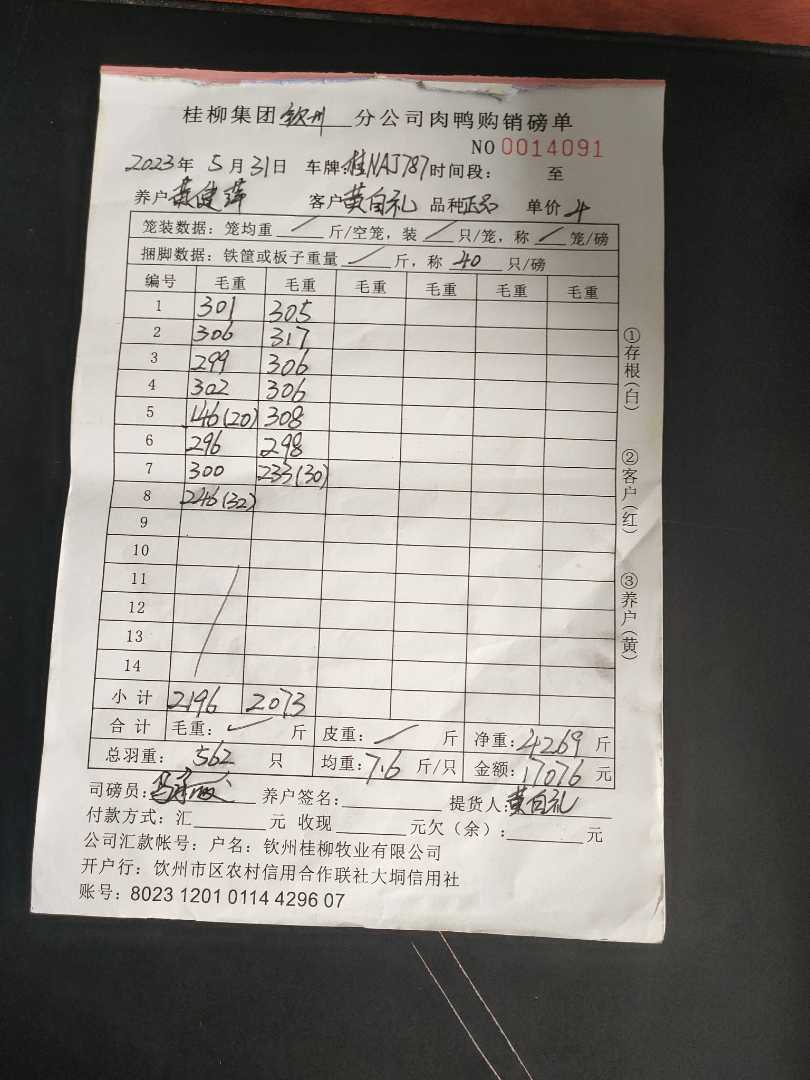 桂柳集团钦州分公司肉鸭购销磅单
NO 0014091
2023年 5月31日 车牌:桂NAJ787 时间段: 至
养户 黄健萍 客户 黄自礼 品种 正品 单价 4
笼装数据: 笼均重 / 斤/空笼, 装 / 只/笼, 称 / 笼/磅
捆脚数据: 铁筐或板子重量 / 斤, 称 40 只/磅
编号 毛重 毛重 毛重 毛重 毛重 毛重
1 301 305
2 306 317
3 299 306
4 302 306
5 146(20) 308
6 296 298
7 300 233(30)
8 246(32)
9
10
11
12
13
14
小计 2196 2073
合计 毛重: / 斤 皮重: / 斤 净重: 4269 斤
总羽重: 562 只 均重: 7.6 斤/只 金额: 17076 元
司磅员: 养户签名: 提货人: 黄自礼
付款方式: 汇 元 收现 元欠(余): 元
公司汇款帐号: 户名: 钦州桂柳牧业有限公司
开户行: 钦州市区农村信用合作联社大垌信用社
账号: 8023 1201 0114 4296 07
①存根(白)
②客户(红)
③养户(黄)